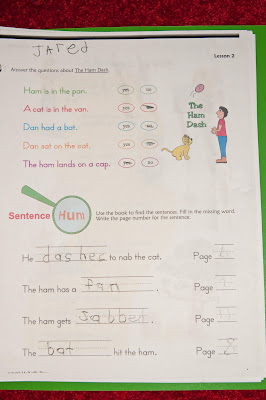 Jared
Lesson 2
Answer the questions about The Ham Dash.
Ham is in the pan. yes no
A cat is in the van. yes
Dan had a bat. yes no
Dan sat on the cat. yes
The ham lands on a cap. yes no
The
Ham
Dash
Sentence Hum
Use the book to find the sentences. Fill in the missing word.
Write the page number for the sentence.
He dashes to nab the cat. Page 6
The ham has a fan . Page 1
The ham gets jabbed . Page
The bat hit the ham. Page 8